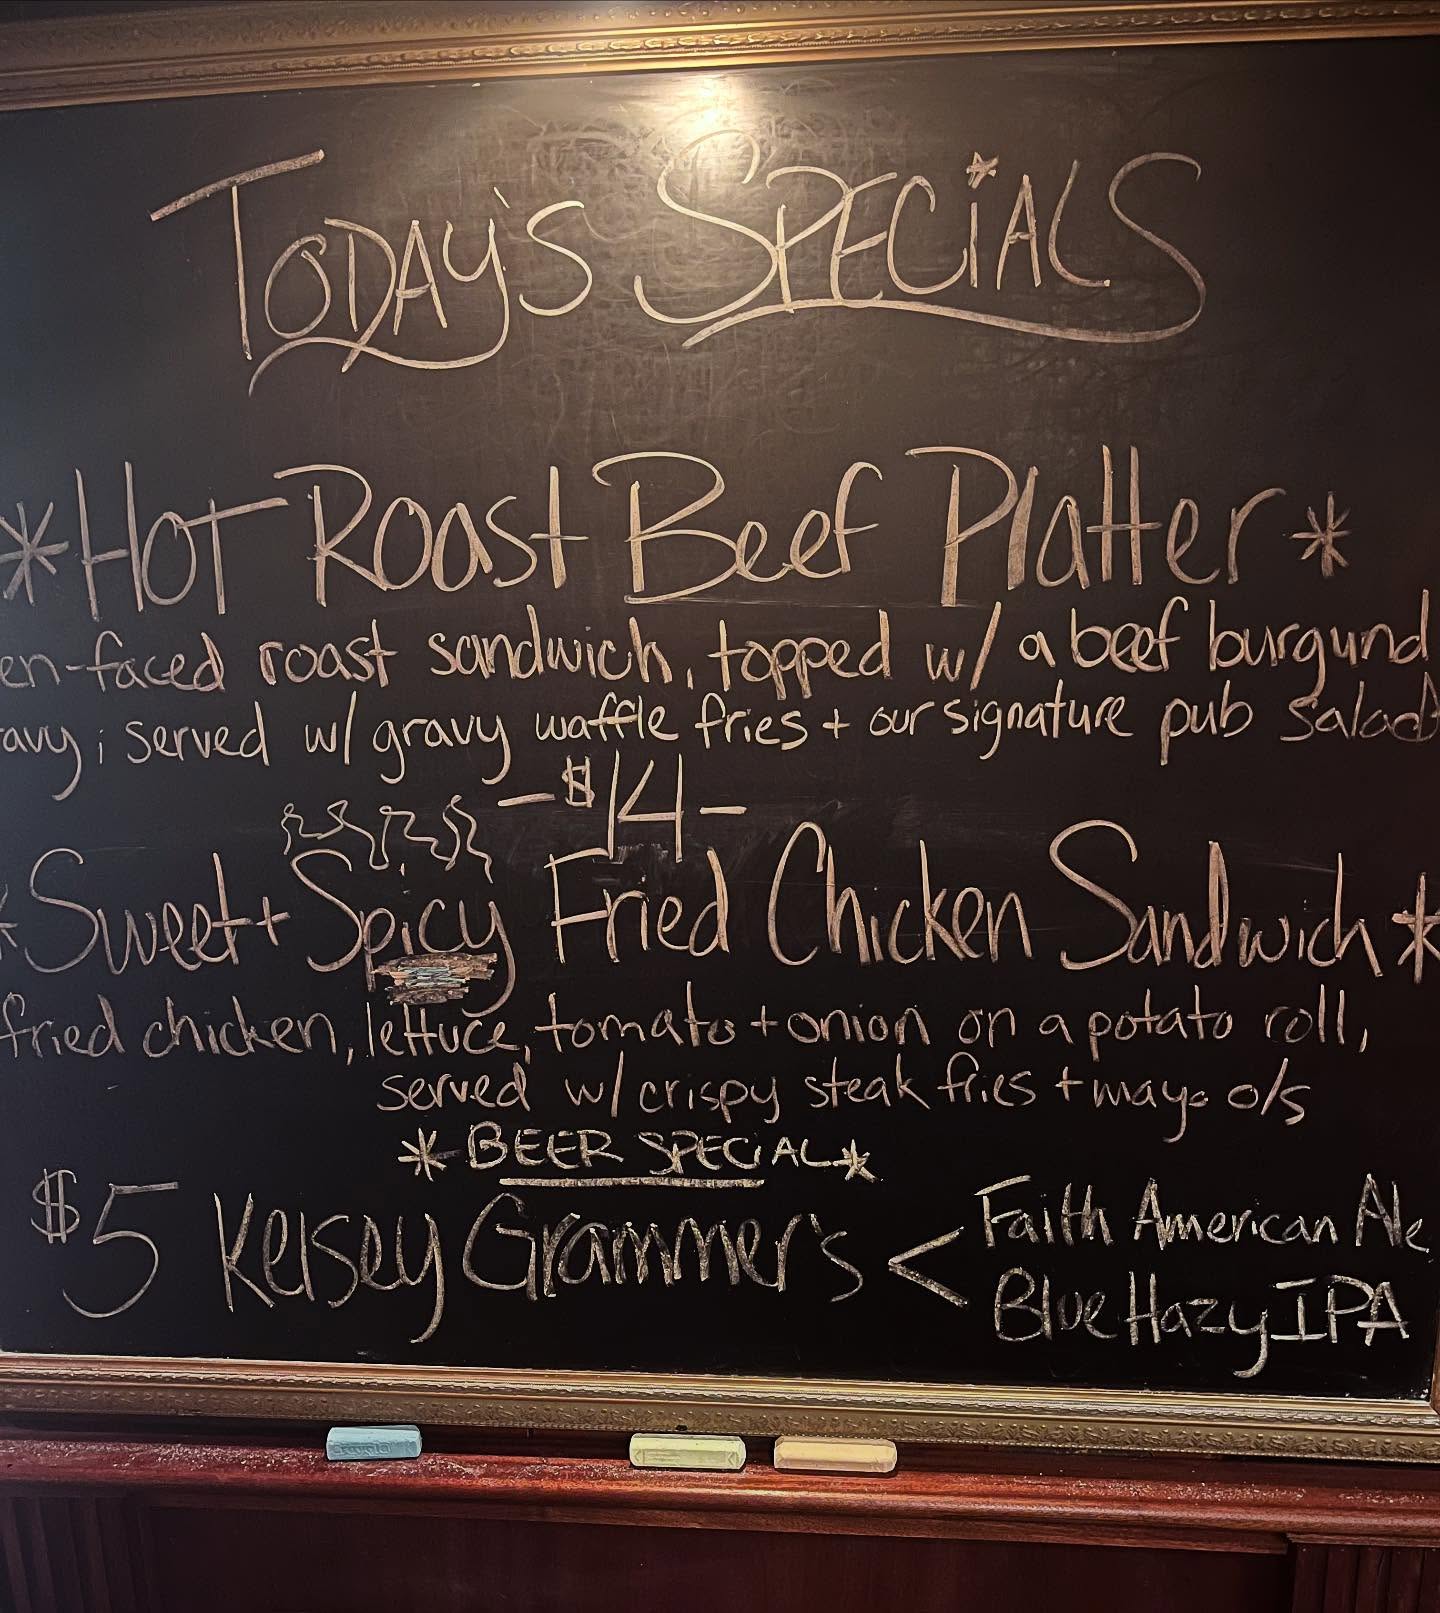 TODAY'S SPECIALS
*HOT Roast Beef Platter*
en-faced roast sandwich, topped w/ a beef burgund
avy; served w/ gravy waffle fries + our signature pub salad
-$14-
*Sweet + Spicy Fried Chicken Sandwich*
fried chicken, lettuce, tomato + onion on a potato roll,
served w/ crispy steak fries + mayo o/s
*BEER SPECIAL*
$5 Kelsey Grammer's < Faith American Ale
Blue Hazy IPA
Crayola